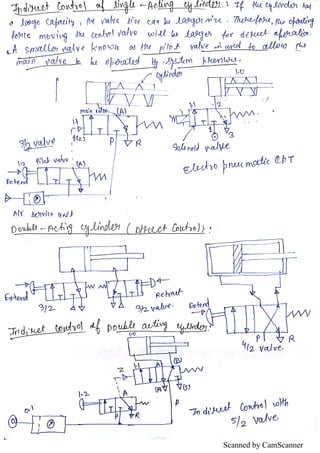 Indirect control of single-Acting cylinder: If the cylinder has
a large capacity, the valve size can be larger size. Therefore, the operating
force moving the control valve will be larger for direct operation.
A smaller valve known as the pilot valve is used to allow the
main valve to be operated by system pressure.
cylinder
1.0
main valve (A)
1.1
P R
3/2 valve
Pilot valve (A)
1.2
Extend
P R
Air service unit
1.0
1.1 2
1 3
Solenoid valve
Electro pneumatic CPT
Double-Acting cylinder (Direct Control):
Extend
3/2 3/2 valve.
Retract
Extend
P R
4/2 valve.
Indirect control of Double acting cylinder:
1.0
Z 1.1 A (B)
(S)
1.2 A
P R
P
0.1
Indirect control with
5/2 valve
Scanned by CamScanner